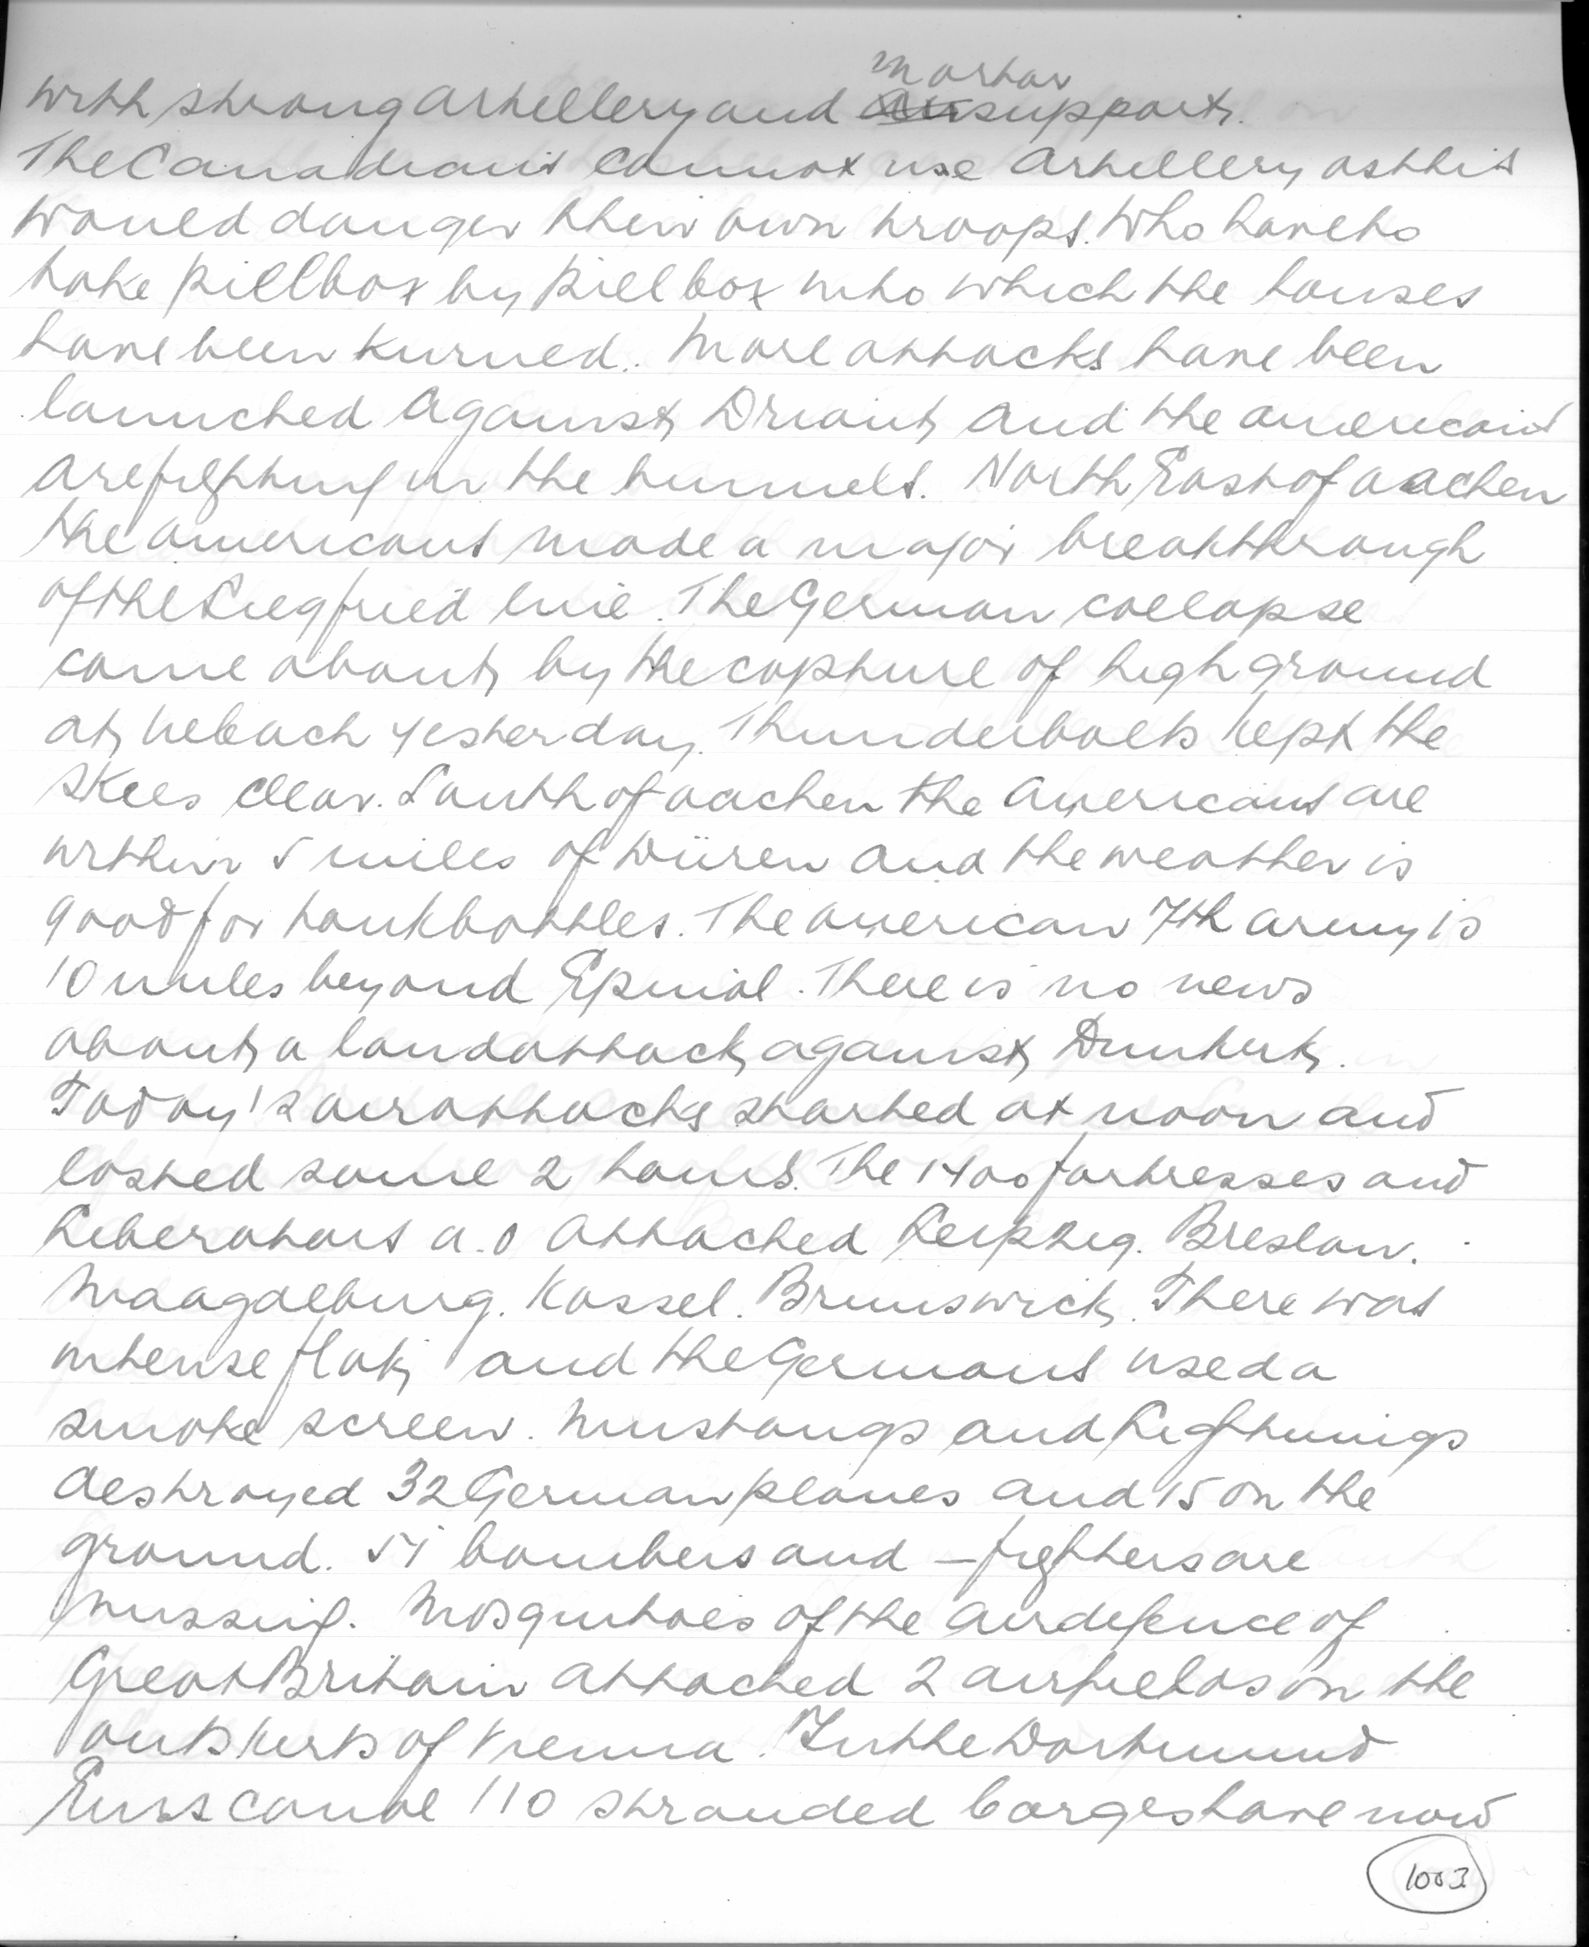 mortar
with strong artillery and air support.
The Canadians cannot use artillery as this
would danger their own troops. Who have to
take pillbox by pillbox into which the houses
have been turned. More attacks have been
launched against Driant and the americans
are fighting in the tunnels. North East of aachen
the americans made a major breakthrough
of the Siegfried line. The German collapse
came about by the capture of high ground
at Uebach yesterday. Thunderbolts kept the
skies clear. South of aachen the Americans are
within 5 miles of Düren and the weather is
good for tankbattles. The american 7th army is
10 miles beyond Epinal. There is no news
about a landattack against Dunkirk.
Today's airattacks started at noon and
lasted some 2 hours. The 1400 fortresses and
Liberators a.o attacked Leipzig. Breslau.
Maagdeburg. Kassel. Brunswick. There was
intense flak and the Germans used a
smoke screen. Mustangs and Lightnings
destroyed 32 German planes and 15 on the
ground. 51 bombers and — fighters are
missing. Mosquitoes of the airdefence of
Great Britain attacked 2 airfields on the
outskirts of Vienna. In the Dortmund
Ems canal 110 stranded barges have now
1003